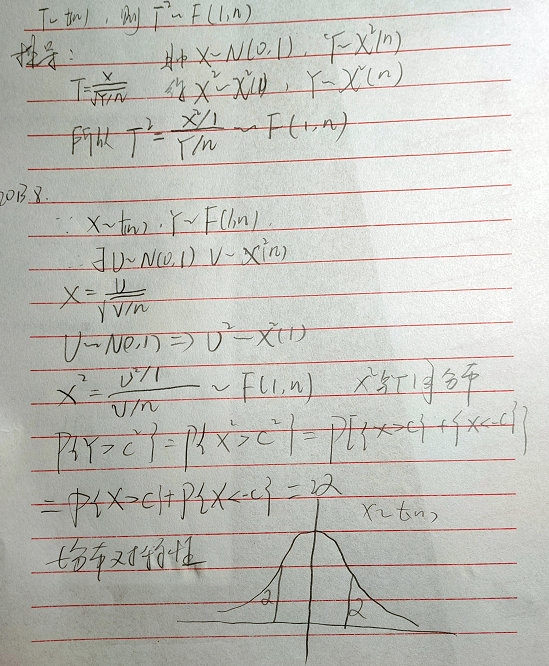 T~t(n), 则 T²~F(1,n)
推导: 其中 X~N(0,1), Y~X²(n)
T=X/√(Y/n) 将 X²~X²(1), Y~X²(n)
所以 T²=(X²/1)/(Y/n) ~ F(1,n)
2013.8.
∵ X~t(n), Y~F(1,n).
∴ ∃U~N(0,1) V~X²(n)
X=U/√(V/n)
U~N(0,1) ⇒ U²~X²(1)
X²=(U²/1)/(V/n) ~ F(1,n) X²与Y同分布
P{Y>c²}=P{X²>c²}=P[{X>c}+{X<-c}]
=P{X>c}+P{X<-c}=2α
t分布对称性 X~t(n)
α α